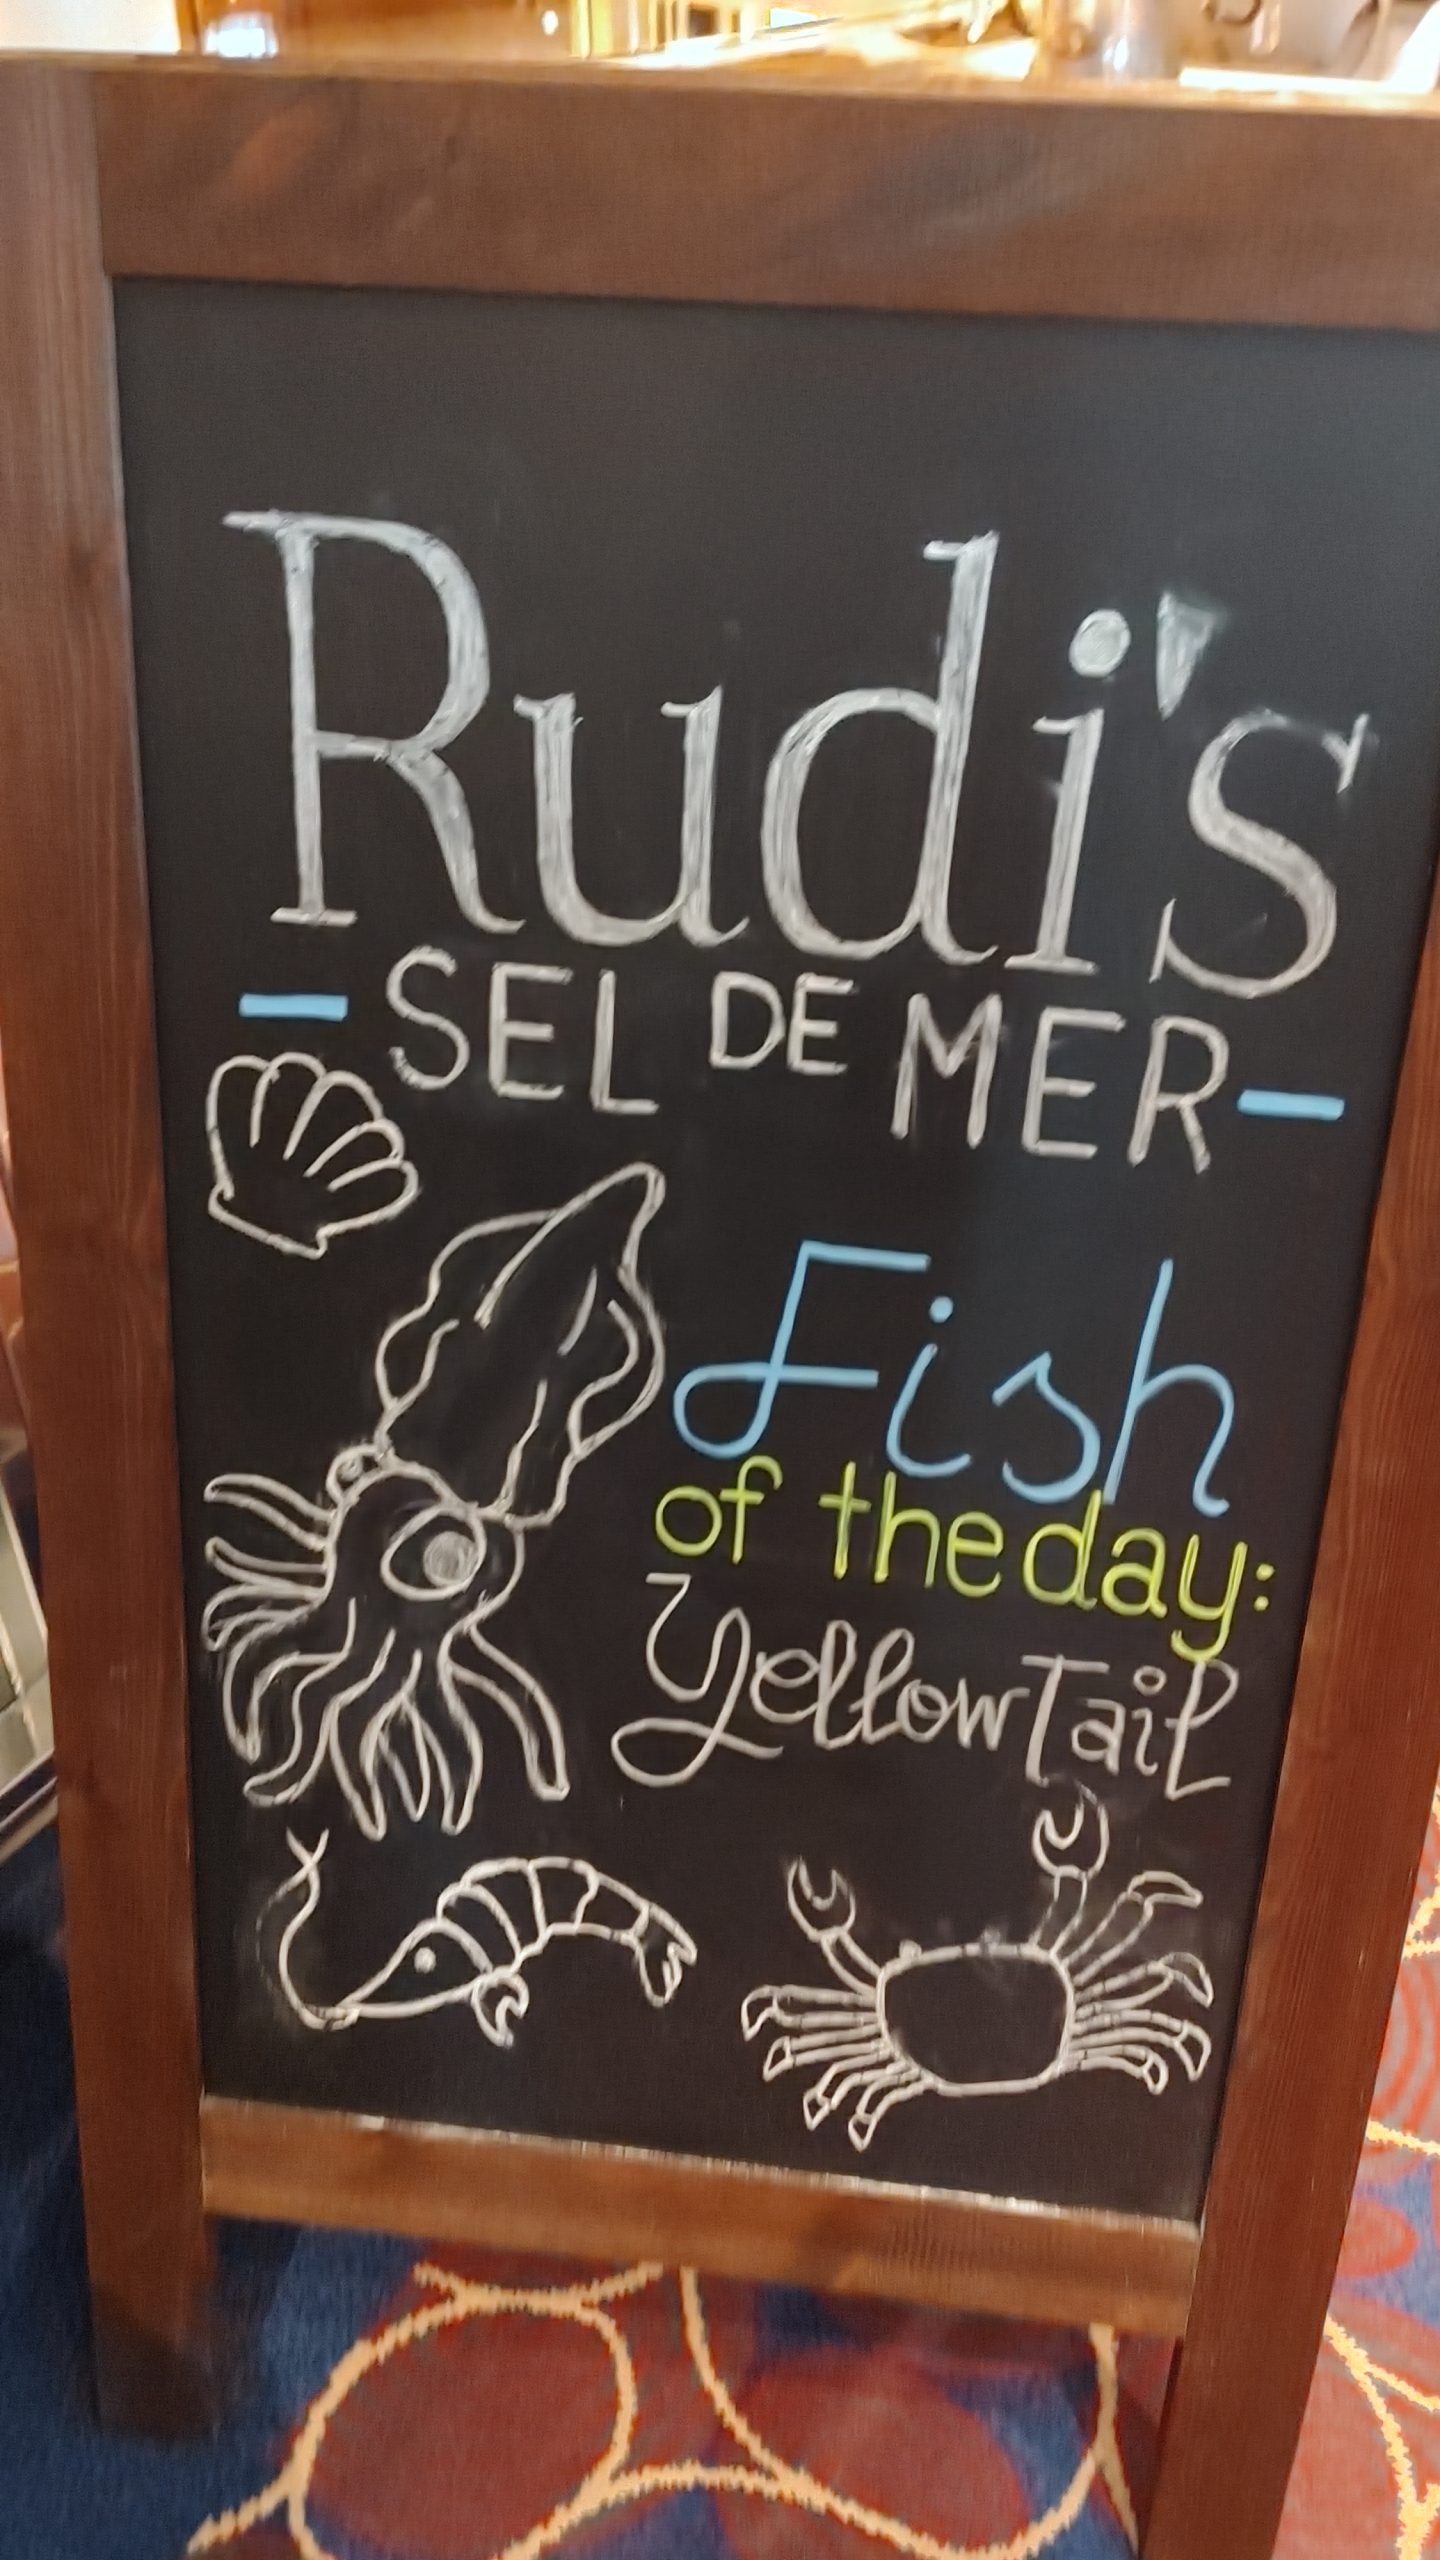 Rudi's
- SEL DE MER -
Fish
of the day:
Yellow Tail